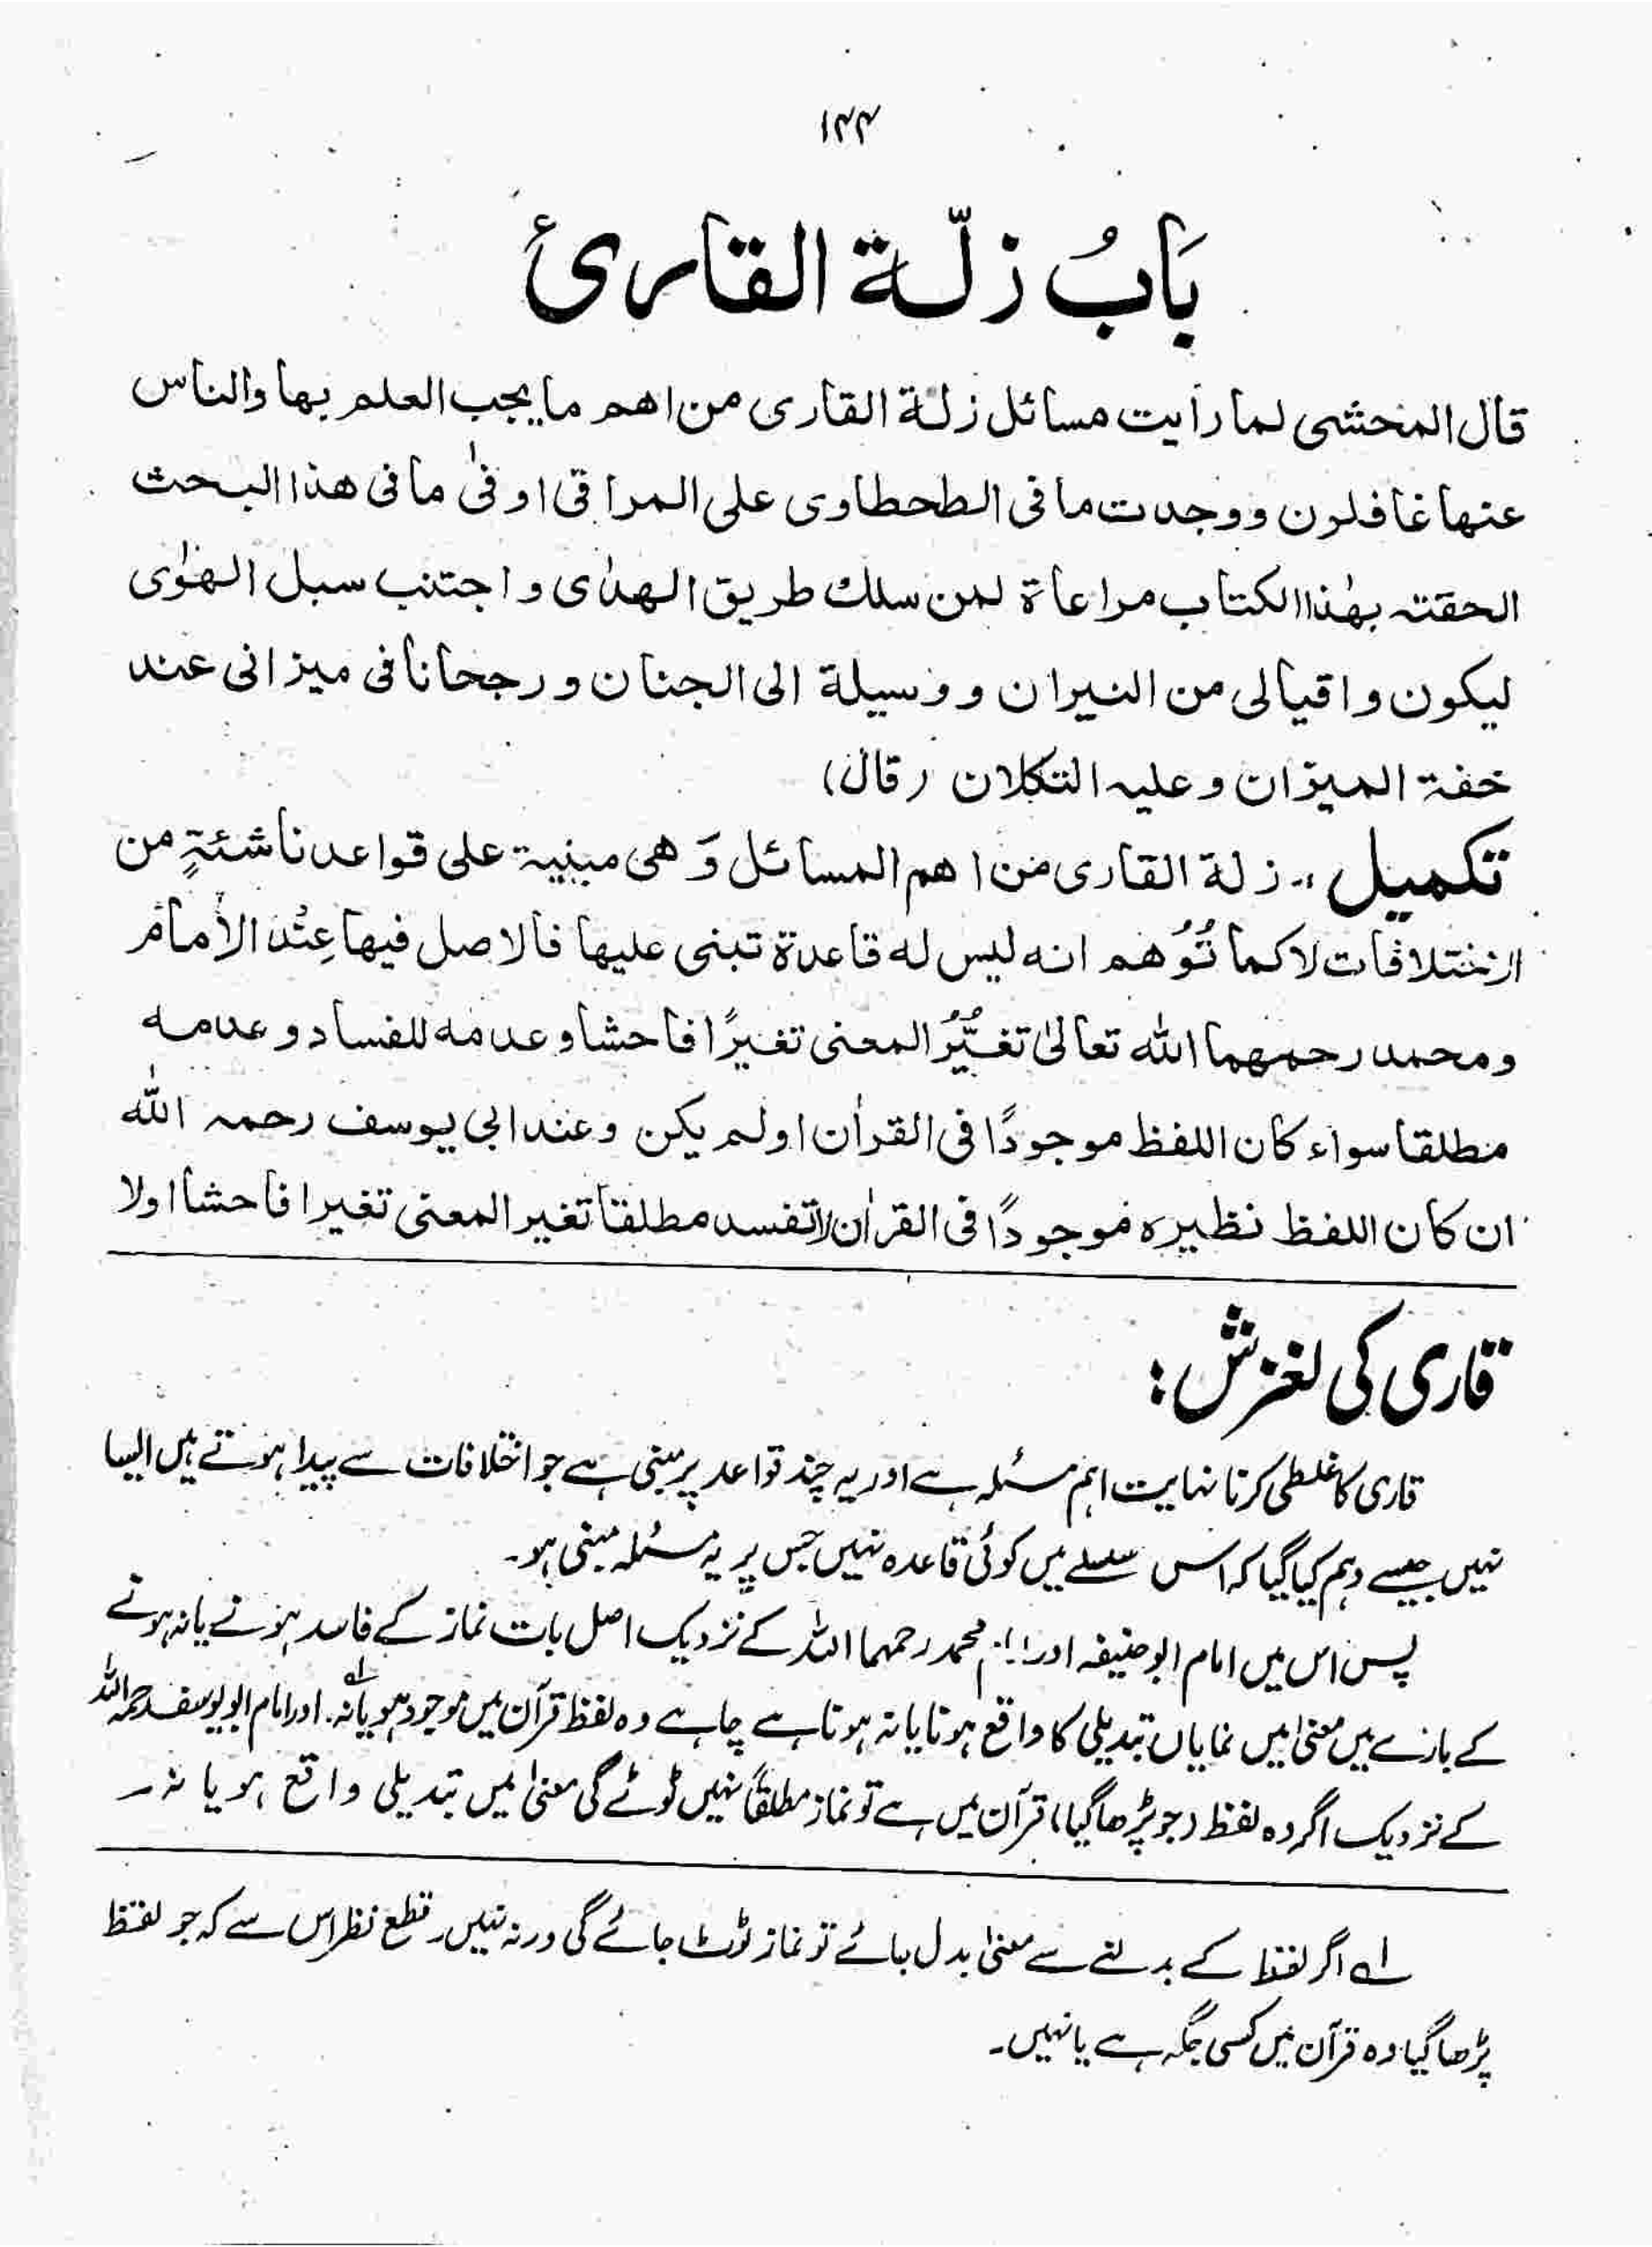 ۱۴۴
بَابُ زلّة القارئ
قال المحشی لما رأیت مسائل زلة القاری من اھم ما یجب العلم بھا والناس
عنھا غافلون ووجدت ما فی الطحطاوی علی المراقی اوفٰی ما فی ھذا البحث
الحقتہ بھٰذا الکتاب مراعاة لمن سلك طریق الھدٰی و اجتنب سبل الھوٰی
لیکون واقیالی من النیران و وسیلة الی الجنان و رجحانا فی میزانی عند
خفة المیزان وعلیہ التکلان (قال)
تکمیل :۔ زلة القاری من اھم المسائل وَھی مبنیة علی قواعد ناشئةٍ من
الاختلافات لا کما تُوُھم انه لیس له قاعدة تبنی علیھا فالاصل فیھا عِنْدَ الأمام
ومحمد رحمھما اللّٰه تعالٰی تغیُّرُ المعنی تغیرًا فاحشا وعدمه للفساد و عدمه
مطلقا سواء کان اللفظ موجودًا فی القراٰن اولم یکن وعند ابی یوسف رحمہ اللّٰه
ان کان اللفظ نظیرہ موجودًا فی القراٰن لا تفسد مطلقا تغیر المعنی تغیرا فاحشا اولا
قاری کی لغزش :
قاری کا غلطی کرنا نہایت اہم مسئلہ ہے اور یہ چند قواعد پر مبنی ہے جو اختلافات سے پیدا ہوتے ہیں ایسا
نہیں جیسے وہم کیا گیا کہ اس سلسلے میں کوئی قاعدہ نہیں جس پر یہ مسئلہ مبنی ہو۔
پس اس میں امام ابو حنیفہ اور امام محمد رحمہما اللہ کے نزدیک اصل بات نماز کے فاسد ہونے یا نہ ہونے
کے بارے میں معنٰی میں نمایاں تبدیلی کا واقع ہونا یا نہ ہونا ہے چاہے وہ لفظ قرآن میں موجود ہو یا نہ۔ لے اور امام ابو یوسف رحمہ اللہ
کے نزدیک اگر وہ لفظ (جو پڑھا گیا) قرآن میں ہے تو نماز مطلقاً نہیں ٹوٹے گی معنٰی میں تبدیلی واقع ہو یا نہ ۔
لے اگر لفظ کے بدلنے سے معنٰی بدل جائے تو نماز ٹوٹ جائے گی ورنہ نہیں۔ قطع نظر اس سے کہ جو لفظ
پڑھا گیا وہ قرآن میں کسی جگہ ہے یا نہیں۔